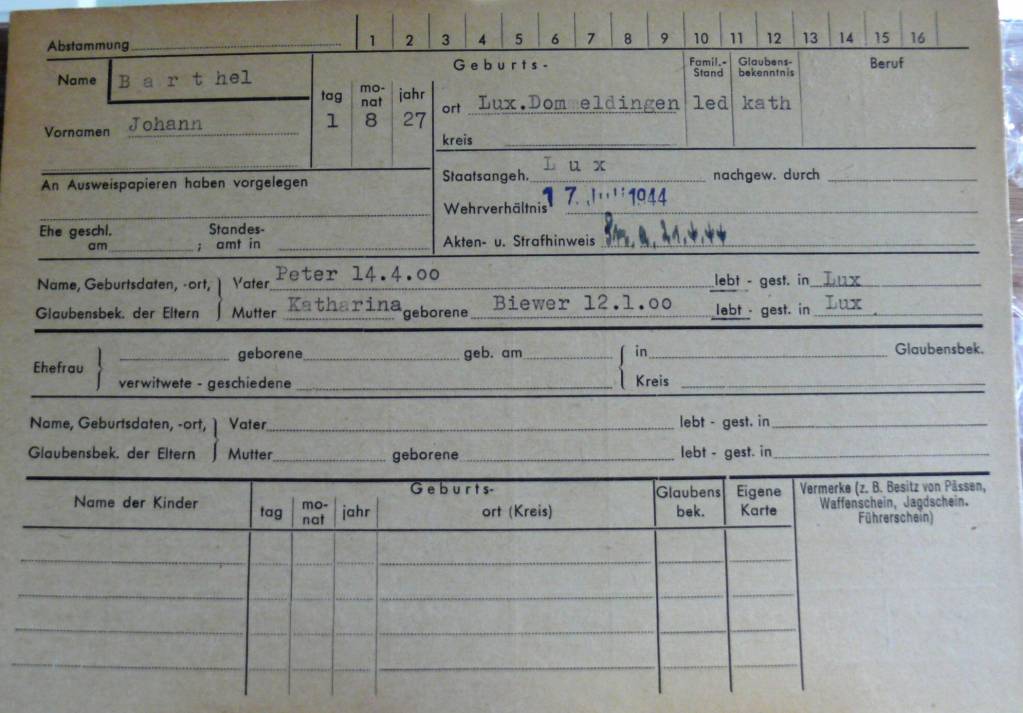 Abstammung 1 2 3 4 5 6 7 8 9 10 11 12 13 14 15 16
Name Barthel
Vornamen Johann
Geburts-
tag monat jahr
1 8 27
ort Lux.Dommeldingen
kreis
Famil.-Stand
led
Glaubens-bekenntnis
kath
Beruf
An Ausweispapieren haben vorgelegen
Staatsangeh. Lux nachgew. durch
Wehrverhältnis 17. Juli 1944
Ehe geschl. am ; Standes-amt in
Akten- u. Strafhinweis
Name, Geburtsdaten, -ort, Vater Peter 14.4.00 lebt - gest. in Lux
Glaubensbek. der Eltern Mutter Katharina geborene Biewer 12.1.00 lebt - gest. in Lux
Ehefrau geborene geb. am in Glaubensbek.
verwitwete - geschiedene Kreis
Name, Geburtsdaten, -ort, Vater lebt - gest. in
Glaubensbek. der Eltern Mutter geborene lebt - gest. in
Name der Kinder
Geburts-
tag monat jahr ort (Kreis)
Glaubens bek.
Eigene Karte
Vermerke (z. B. Besitz von Pässen,
Waffenschein, Jagdschein.
Führerschein)